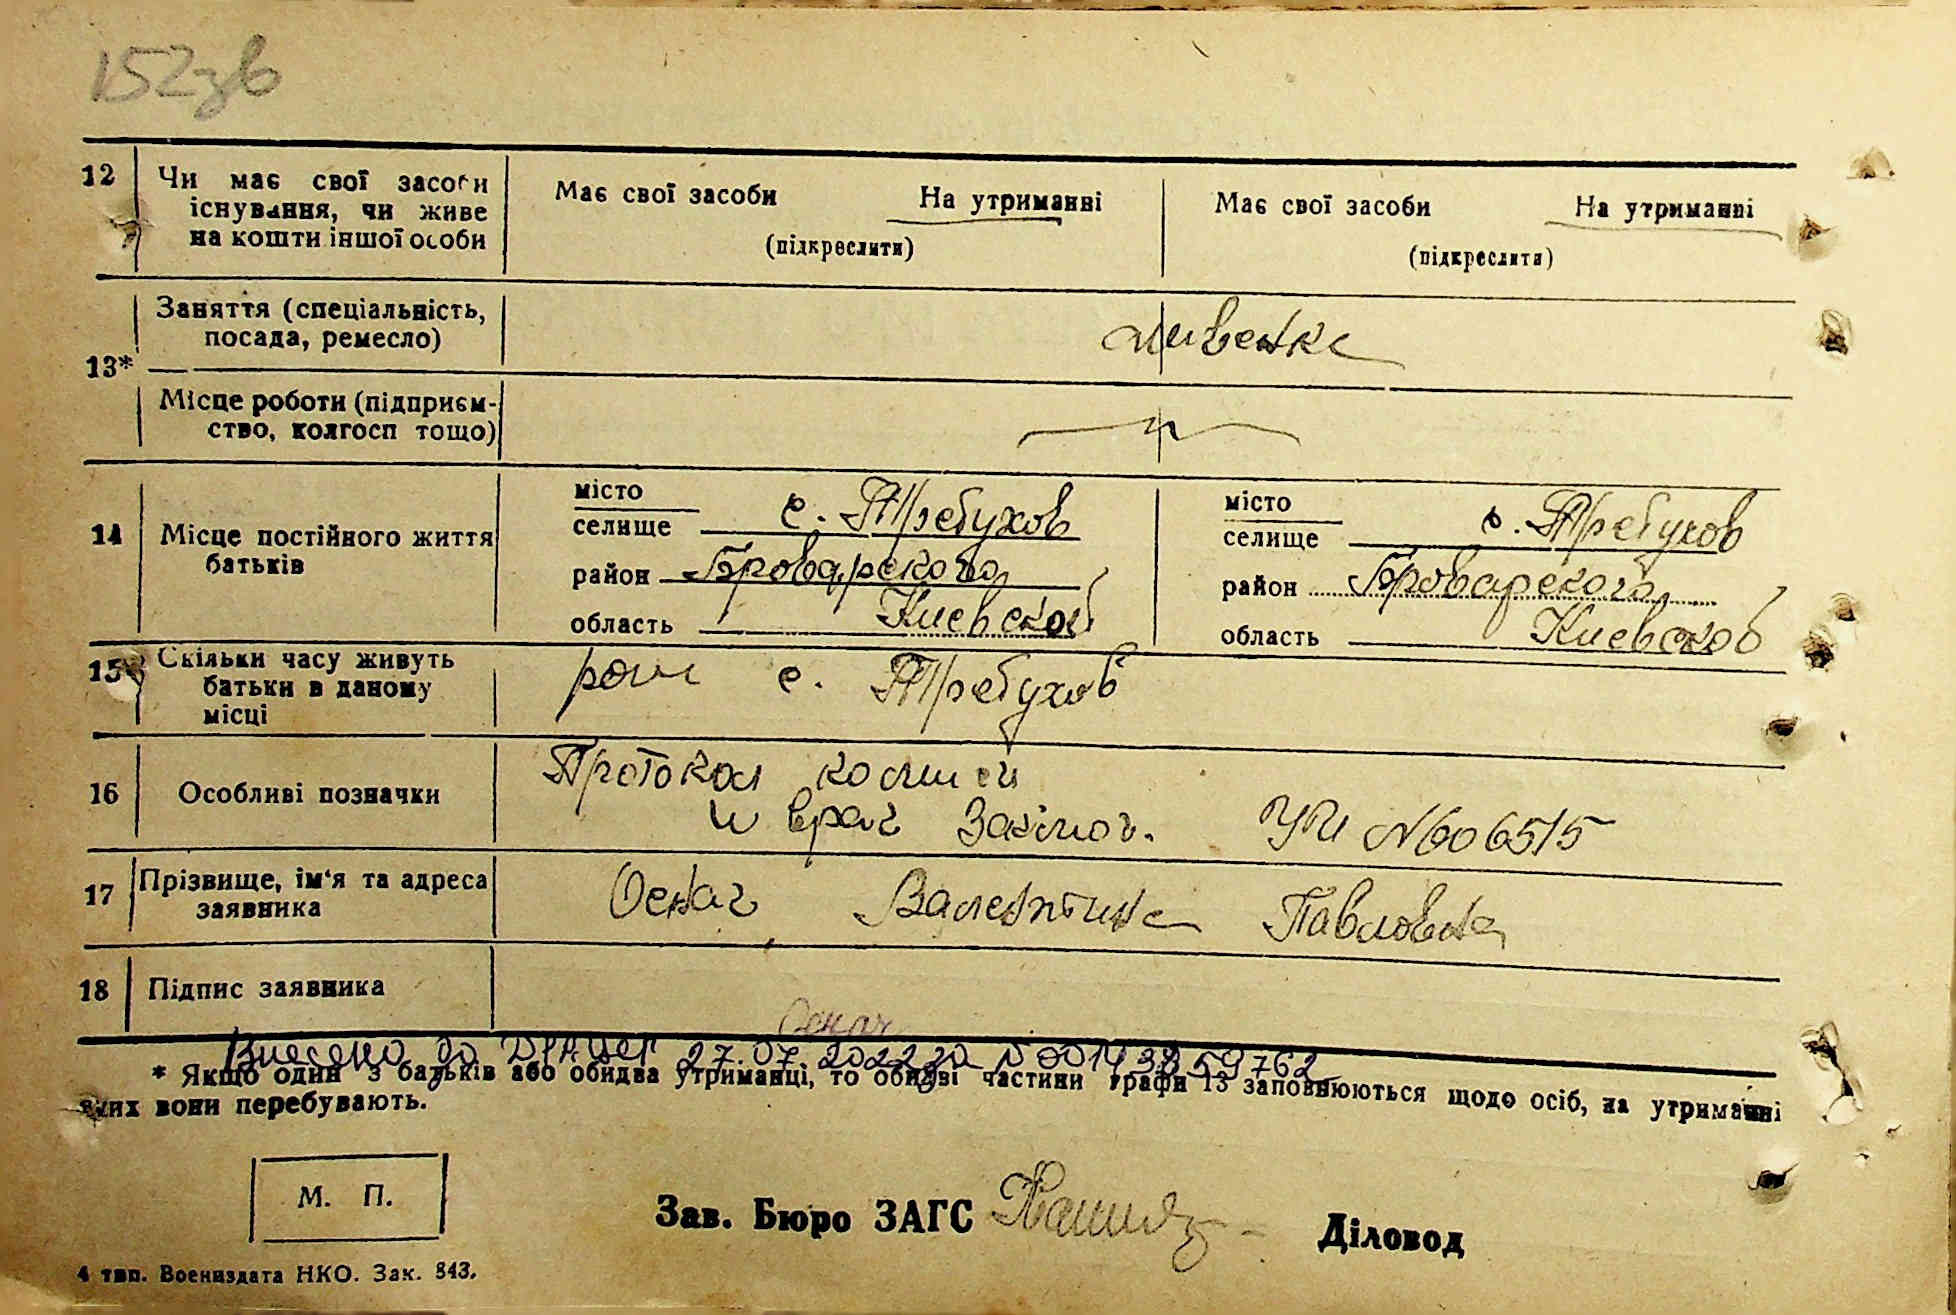 152зв
12 Чи має свої засоби існування, чи живе на кошти іншої особи
Має свої засоби На утриманні
(підкреслити)
Має свої засоби На утриманні
(підкреслити)
13*
Заняття (спеціальність,
посада, ремесло)
Місце роботи (підприєм-
ство, колгосп тощо)
14 Місце постійного життя
батьків
місто
селище с. Требухов
район Броварского
область Киевской
місто
селище с. Требухов
район Броварского
область Киевской
15 Скільки часу живуть
батьки в даному
місці
с. Требухов
16 Особливі позначки
Протокол
и врач Заключ. № 606515
17 Прізвище, ім'я та адреса
заявника
Оснач Валентина Павловна
18 Підпис заявника
Оснач
Внесено до ДРАЦСГ 27.07.2022 за № 00143859762
* Якщо один з батьків або обидва утриманці, то обидві частини графи 13 заповнюються щодо осіб, на утриманні
яких вони перебувають.
М. П.
Зав. Бюро ЗАГС
Діловод
4 тип. Воениздата НКО. Зак. 843.